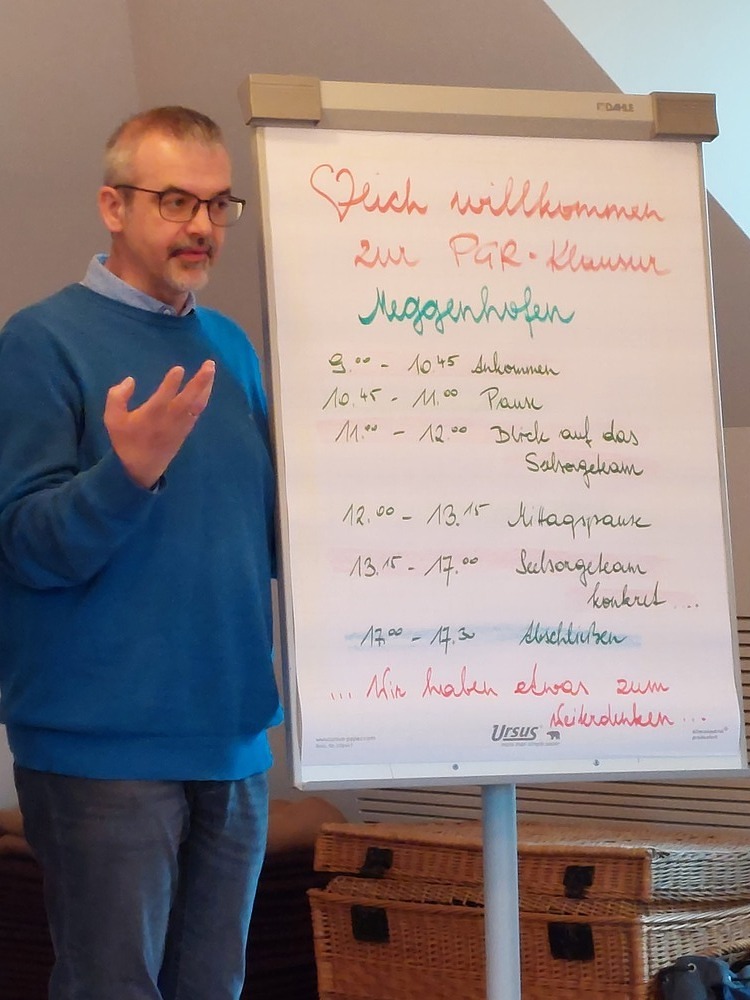 DAHLE
♡lich willkommen
zur PGR-Klausur
Meggenhofen
9.00 - 10.45 Ankommen
10.45 - 11.00 Pause
11.00 - 12.00 Blick auf das
Seelsorgeteam
12.00 - 13.15 Mittagspause
13.15 - 17.00 Seelsorgeteam
konkret ....
17.00 - 17.30 Abschließen
... Wir haben etwas zum
Weiterdenken ...
Ursus